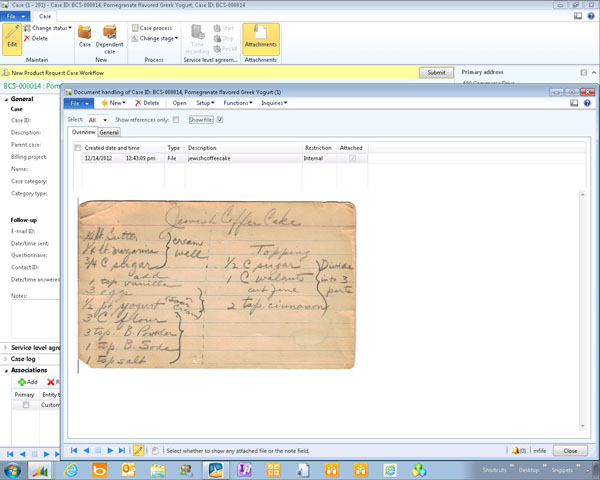 Case (1 - 292) - Case ID: BCS-000014, Pomegranate flavored Greek Yogurt, Case ID: BCS-000014
File
Case
Edit
Change status
Delete
Maintain
Case
Dependent
New
Case process
Change stage
Process
Time recording
Start
Stop
Recall
Service level agreem...
Attachments
Attachments
New Product Request Case Workflow
Submit
Primary address
BCS-000014 : Pom
General
Case
Case ID:
Description:
Parent case:
Billing project:
Name:
Case category:
Category type:
Follow-up
E-mail ID:
Date/time sent:
Questionnaire:
Contact ID:
Date/time answered:
Notes:
Service level agre
Case log
Associations
Add
Primary
Entity t
Custom
Document handling of Case ID: BCS-000014, Pomegranate flavored Greek Yogurt (1)
File
New
Delete
Open
Setup
Functions
Inquiries
Select:
All
Show references only:
Show file:
Overview
General
Created date and time
Type
Description
Restriction
Attached
12/14/2012
12:43:09 pm
File
jewishcoffeecake
Internal
Jewish Coffee Cake
1/4 lb. butter
1/4 lb. margarine
3/4 C sugars
cream well
add
1 tsp vanilla
3 eggs
1/2 pt yogurt (Sour Cream)
3 C flour
3 tsp. B. Powder
1 tsp. B. Soda
1 tsp salt
Topping
1/2 C sugar
1 C walnuts
cut fine
2 tsp. cinnamon
Divide into 3 parts
Select whether to show any attached file or the note field.
(0)
mfife
Close
Shortcuts
Desktop
Snippets